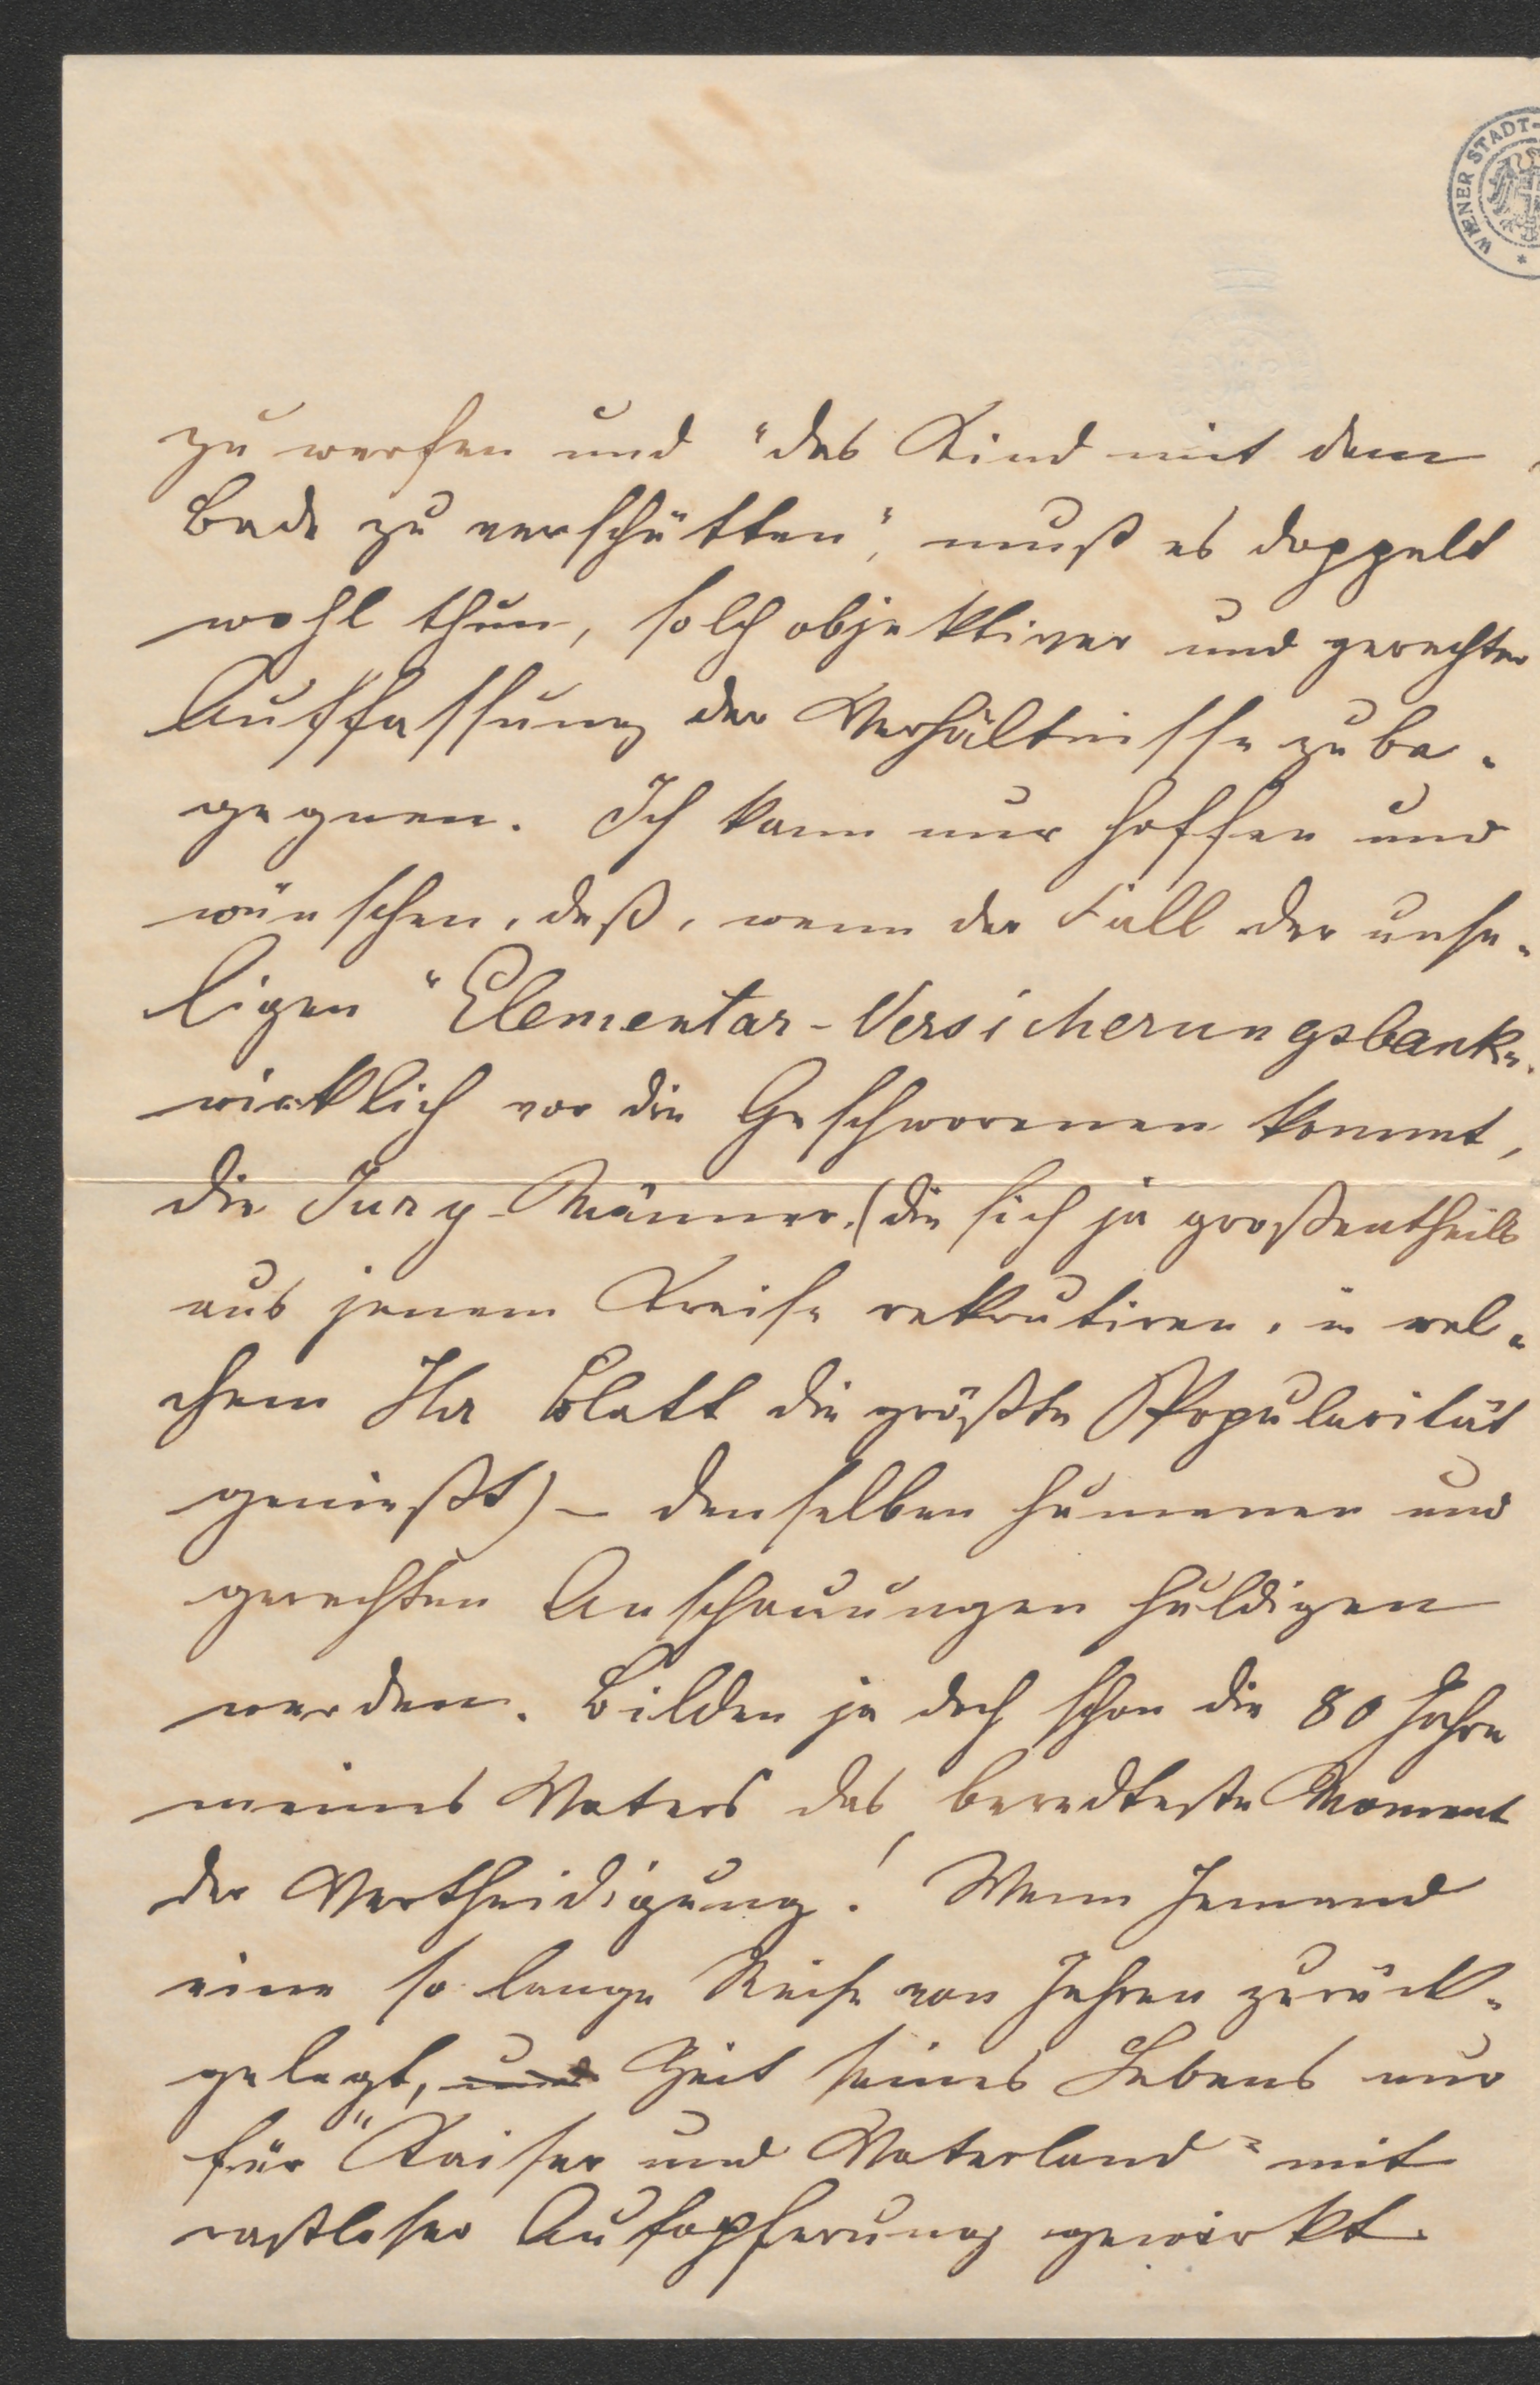 WIENER STADT-
zu werfen und "das Kind mit dem
Bade zu verschütten", muß es doppelt
wohl thun, solch objektiver und gerechter
Auffassung der Verhältnisse zu be-
gegnen. Ich kann nur hoffen und
wünschen, daß, wenn der Fall der unse-
ligen "Elementar-Versicherungsbank"
wirklich vor die Geschworenen kommt,
die Jury-Männer (die sich ja großentheils
aus jenem Kreise rekrutiren, in wel-
chem Ihr Blatt die größte Popularität
genießt) – denselben humanen und
gerechten Anschauungen huldigen
werden. Bilden ja doch schon die 80 Jahre
meines Vaters das beredteste Moment
der Vertheidigung! Wenn Jemand
eine so lange Reihe von Jahren zurück-
gelegt, und Zeit seines Lebens nur
für "Kaiser und Vaterland" mit
rastloser Aufopferung gewirkt